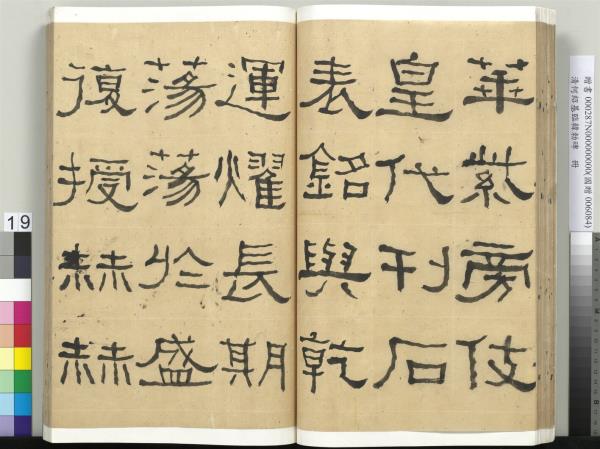 華紫旁伎
皇代刊石
表銘與乾
運燿長期
蕩蕩於盛
復授赫赫
贈書 000287N000000000(國贈 006084)
清何紹基臨韓勑碑 冊
19